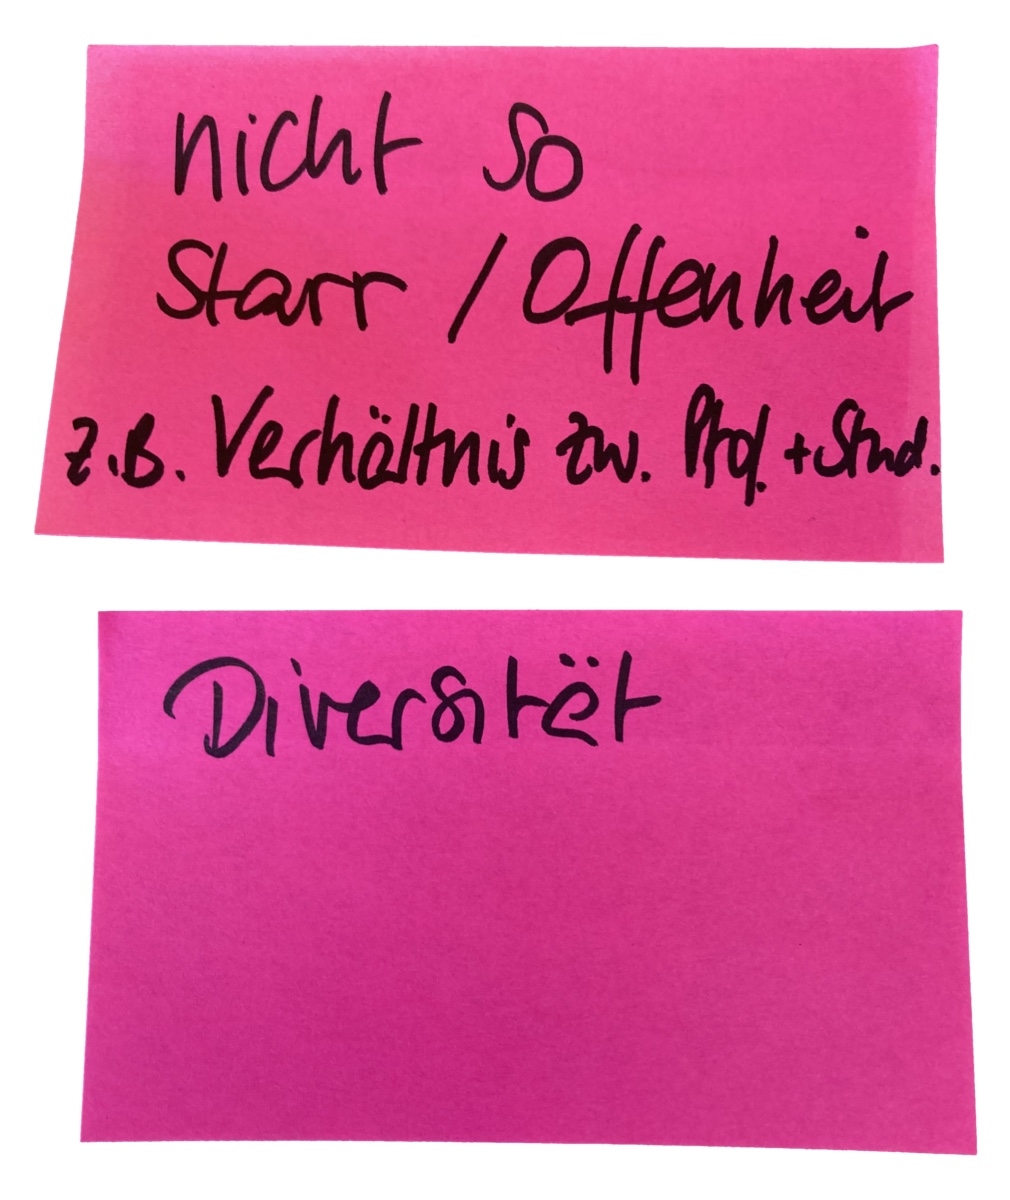 nicht so
starr / Offenheit
z.B. Verhältnis zw. Prof. + Stud.
Diversität